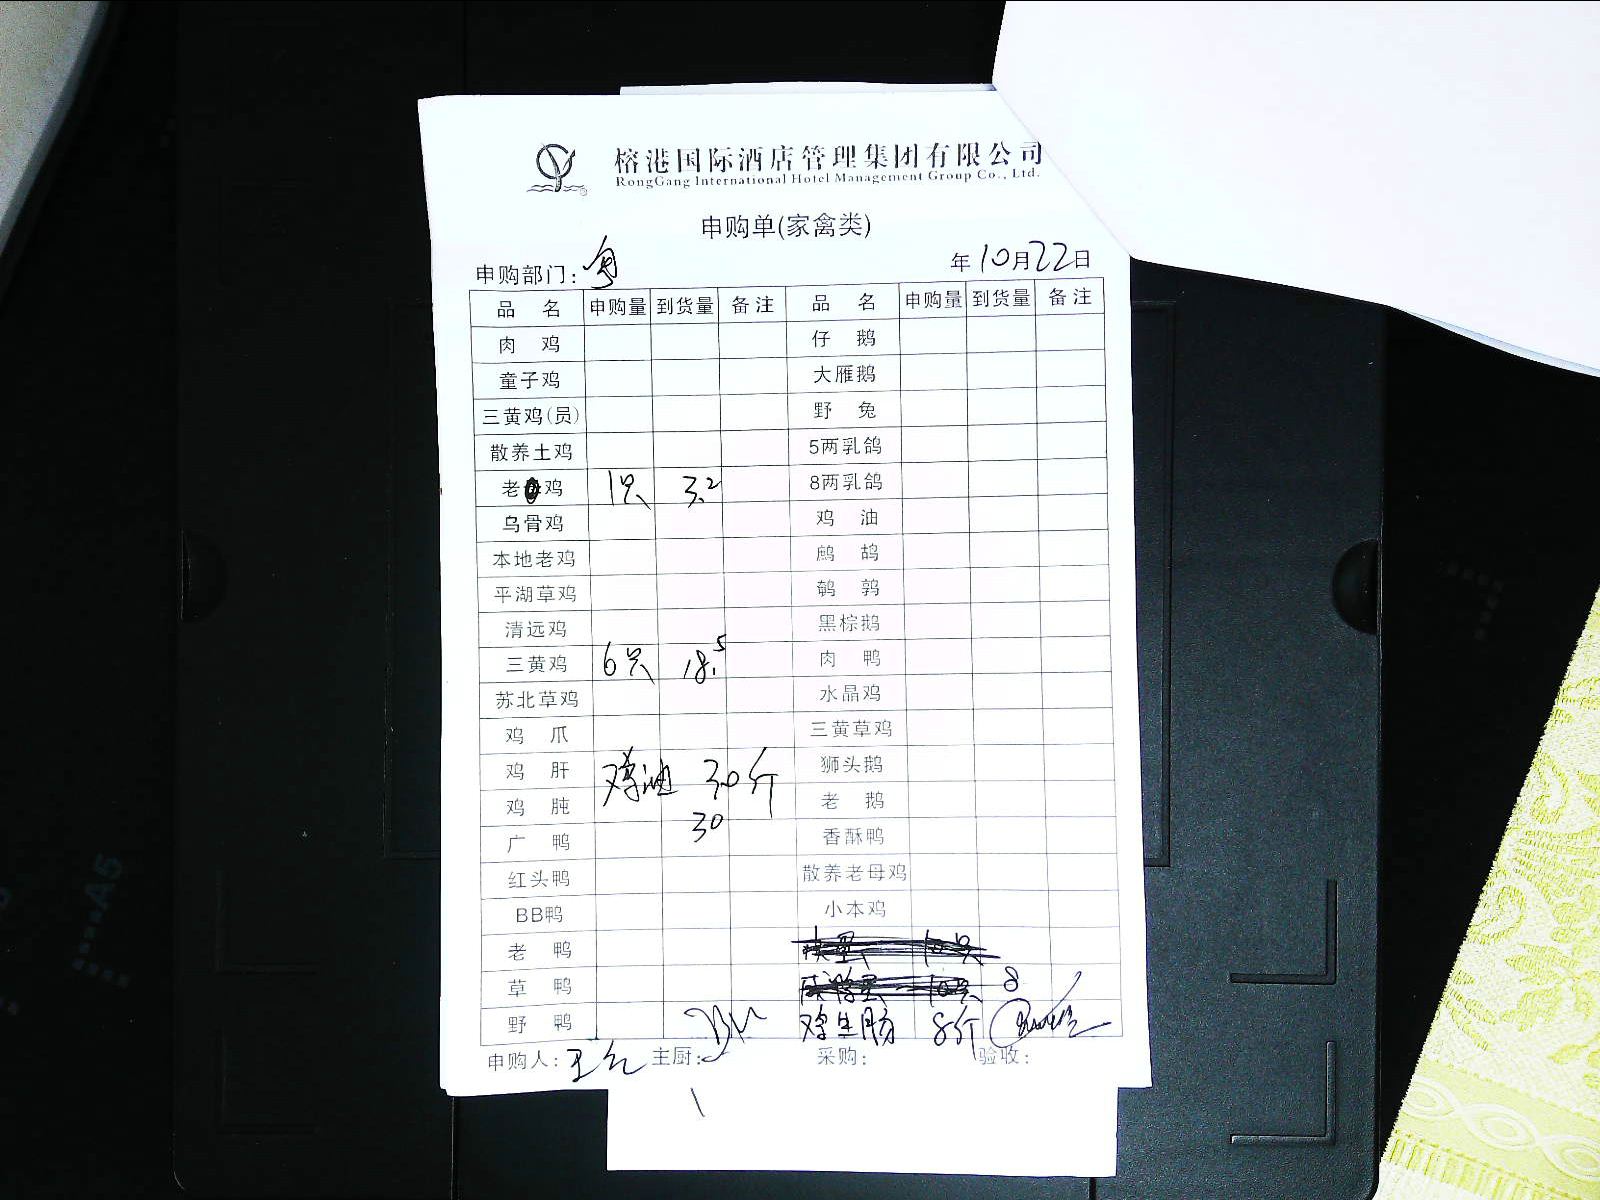 榕港国际酒店管理集团有限公司
RongGang International Hotel Management Group Co., Ltd.
申购单(家禽类)
申购部门: 年10月22日
品 名 申购量 到货量 备注 品 名 申购量 到货量 备注
肉 鸡 仔 鹅
童子鸡 大雁鹅
三黄鸡(员) 野 兔
散养土鸡 5两乳鸽
老鸡 1只 3.2 8两乳鸽
乌骨鸡 鸡 油
本地老鸡 鹧 鸪
平湖草鸡 鹌 鹑
清远鸡 黑棕鹅
三黄鸡 6只 18.5 肉 鸭
苏北草鸡 水晶鸡
鸡 爪 三黄草鸡
鸡 肝 鸡油 30斤 狮头鹅
鸡 肫 30 老 鹅
广 鸭 香酥鸭
红头鸭 散养老母鸡
BB鸭 小本鸡
老 鸭
草 鸭 8
野 鸭 鸡生肠 8斤
申购人: 主厨: 采购: 验收:
A5